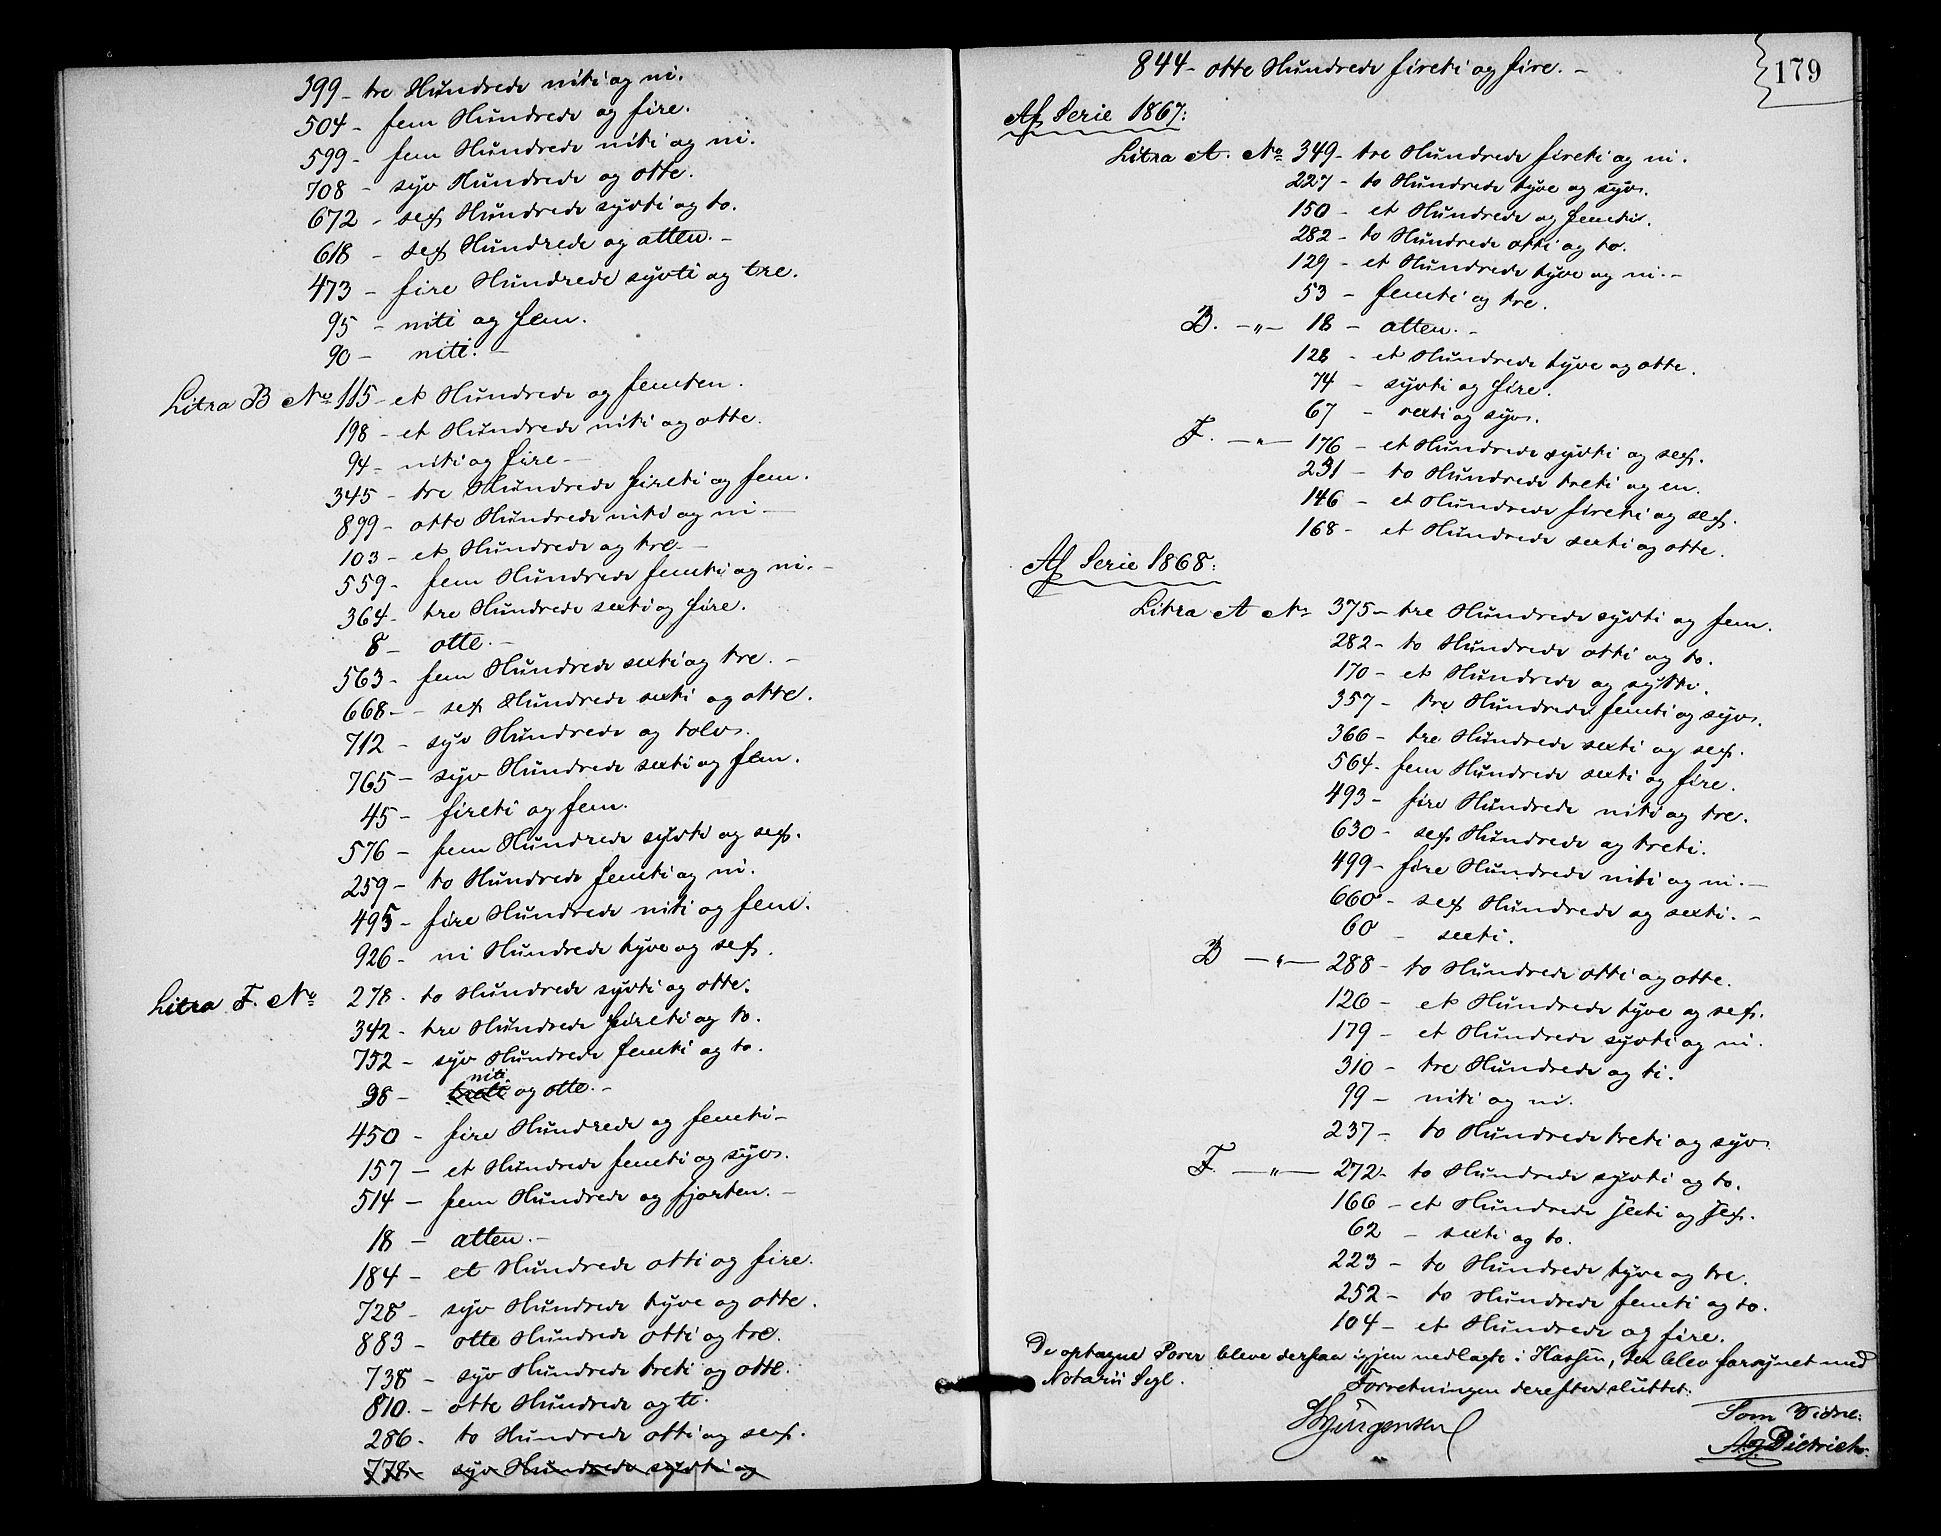 399 - tre Hundrede niti og ni.
504 - fem Hundrede og fire.
599 - fem Hundrede niti og ni.
708 - syv Hundrede og otte.
672 - sex Hundrede sytti og to.
618 - sex Hundrede og atten. -
473 - fire Hundrede sytti og tre.
95 - niti og fem.
90 - niti. -
Litra B No 115 - et Hundrede og femten.
198 - et Hundrede niti og otte.
94 - niti og fire -
345 - tre Hundrede fireti og fem.
899 - otte Hundrede niti og ni -
103 - et Hundrede og tre. -
559 - fem Hundrede femti og ni. -
364 - tre Hundrede sexti og fire.
8 - otte. -
563 - fem Hundrede sexti og tre. -
668 - - sex Hundrede sexti og otte.
712 - syv Hundrede og tolv.
765 - syv Hundrede sexti og fem.
45 - fireti og fem.
576 - fem Hundrede sytti og sex.
259 - to Hundrede femti og ni.
495 - fire Hundrede niti og fem.
926 - ni Hundrede tyve og sex.
Litra F. No 278 - to Hundrede sytti og otte.
342 - tre Hundrede fireti og to.
752 - syv Hundrede femti og to.
niti
98 - treti og otte. -
450 - fire Hundrede og femti -
157 - et Hundrede femti og syv.
514 - fem Hundrede og fjorten. -
18 - atten. -
184 - et Hundrede otti og fire.
728 - syv Hundrede tyve og otte.
883 - otte Hundrede otti og tre.
738 - syv Hundrede treti og otte.
810. - otte Hundrede og ti.
286 - to Hundrede otti og sex.
778 - syv Hundrede sytti og
179
844 - otte Hundrede fireti og fire. -
Af Serie 1867:
Litra A. No 349 - tre Hundrede fireti og ni.
227 - to Hundrede tyve og syv.
150 - et Hundrede og femti.
282 - to Hundrede otti og to.
129 - et Hundrede tyve og ni. -
53 - femti og tre.
B. - " - 18 - atten. -
128 - et Hundrede tyve og otte.
74 - sytti og fire.
67 - sexti og syv.
F. - " - 176 - et Hundrede sytti og sex.
231 - to Hundrede treti og en.
146 - et Hundrede fireti og sex.
168 - et Hundrede sexti og otte.
Af Serie 1868:
Litra A No 375 - tre Hundrede sytti og fem.
282 - to Hundrede otti og to.
170 - et Hundrede og sytti.
357 - tre Hundrede femti og syv.
366 - tre Hundrede sexti og sex.
564 - fem Hundrede sexti og fire.
493 - fire Hundrede niti og tre.
630 - sex Hundrede og treti.
499 - fire Hundrede niti og ni. -
660 - sex Hundrede og sexti. -
60 - sexti.
B - " - 288 - to Hundrede otti og otte.
126 - et Hundrede tyve og sex.
179 - et Hundrede sytti og ni.
310 - tre Hundrede og ti.
99 - niti og ni.
237 - to Hundrede treti og syv.
F. - " - 272 - to Hundrede sytti og to.
166 - et Hundrede sexti og sex.
62 - sexti og to.
223 - to Hundrede tyve og tre.
252 - to Hundrede femti og to.
104 - et Hundrede og fire.
De optagne Poser bleve derpaa igjen nedlagte i Kassen, der blev forsynet med
Notarii Segl. Forretningen derefter sluttet.
Jürgensen
Som Vidne:
Ag. Dietrich.